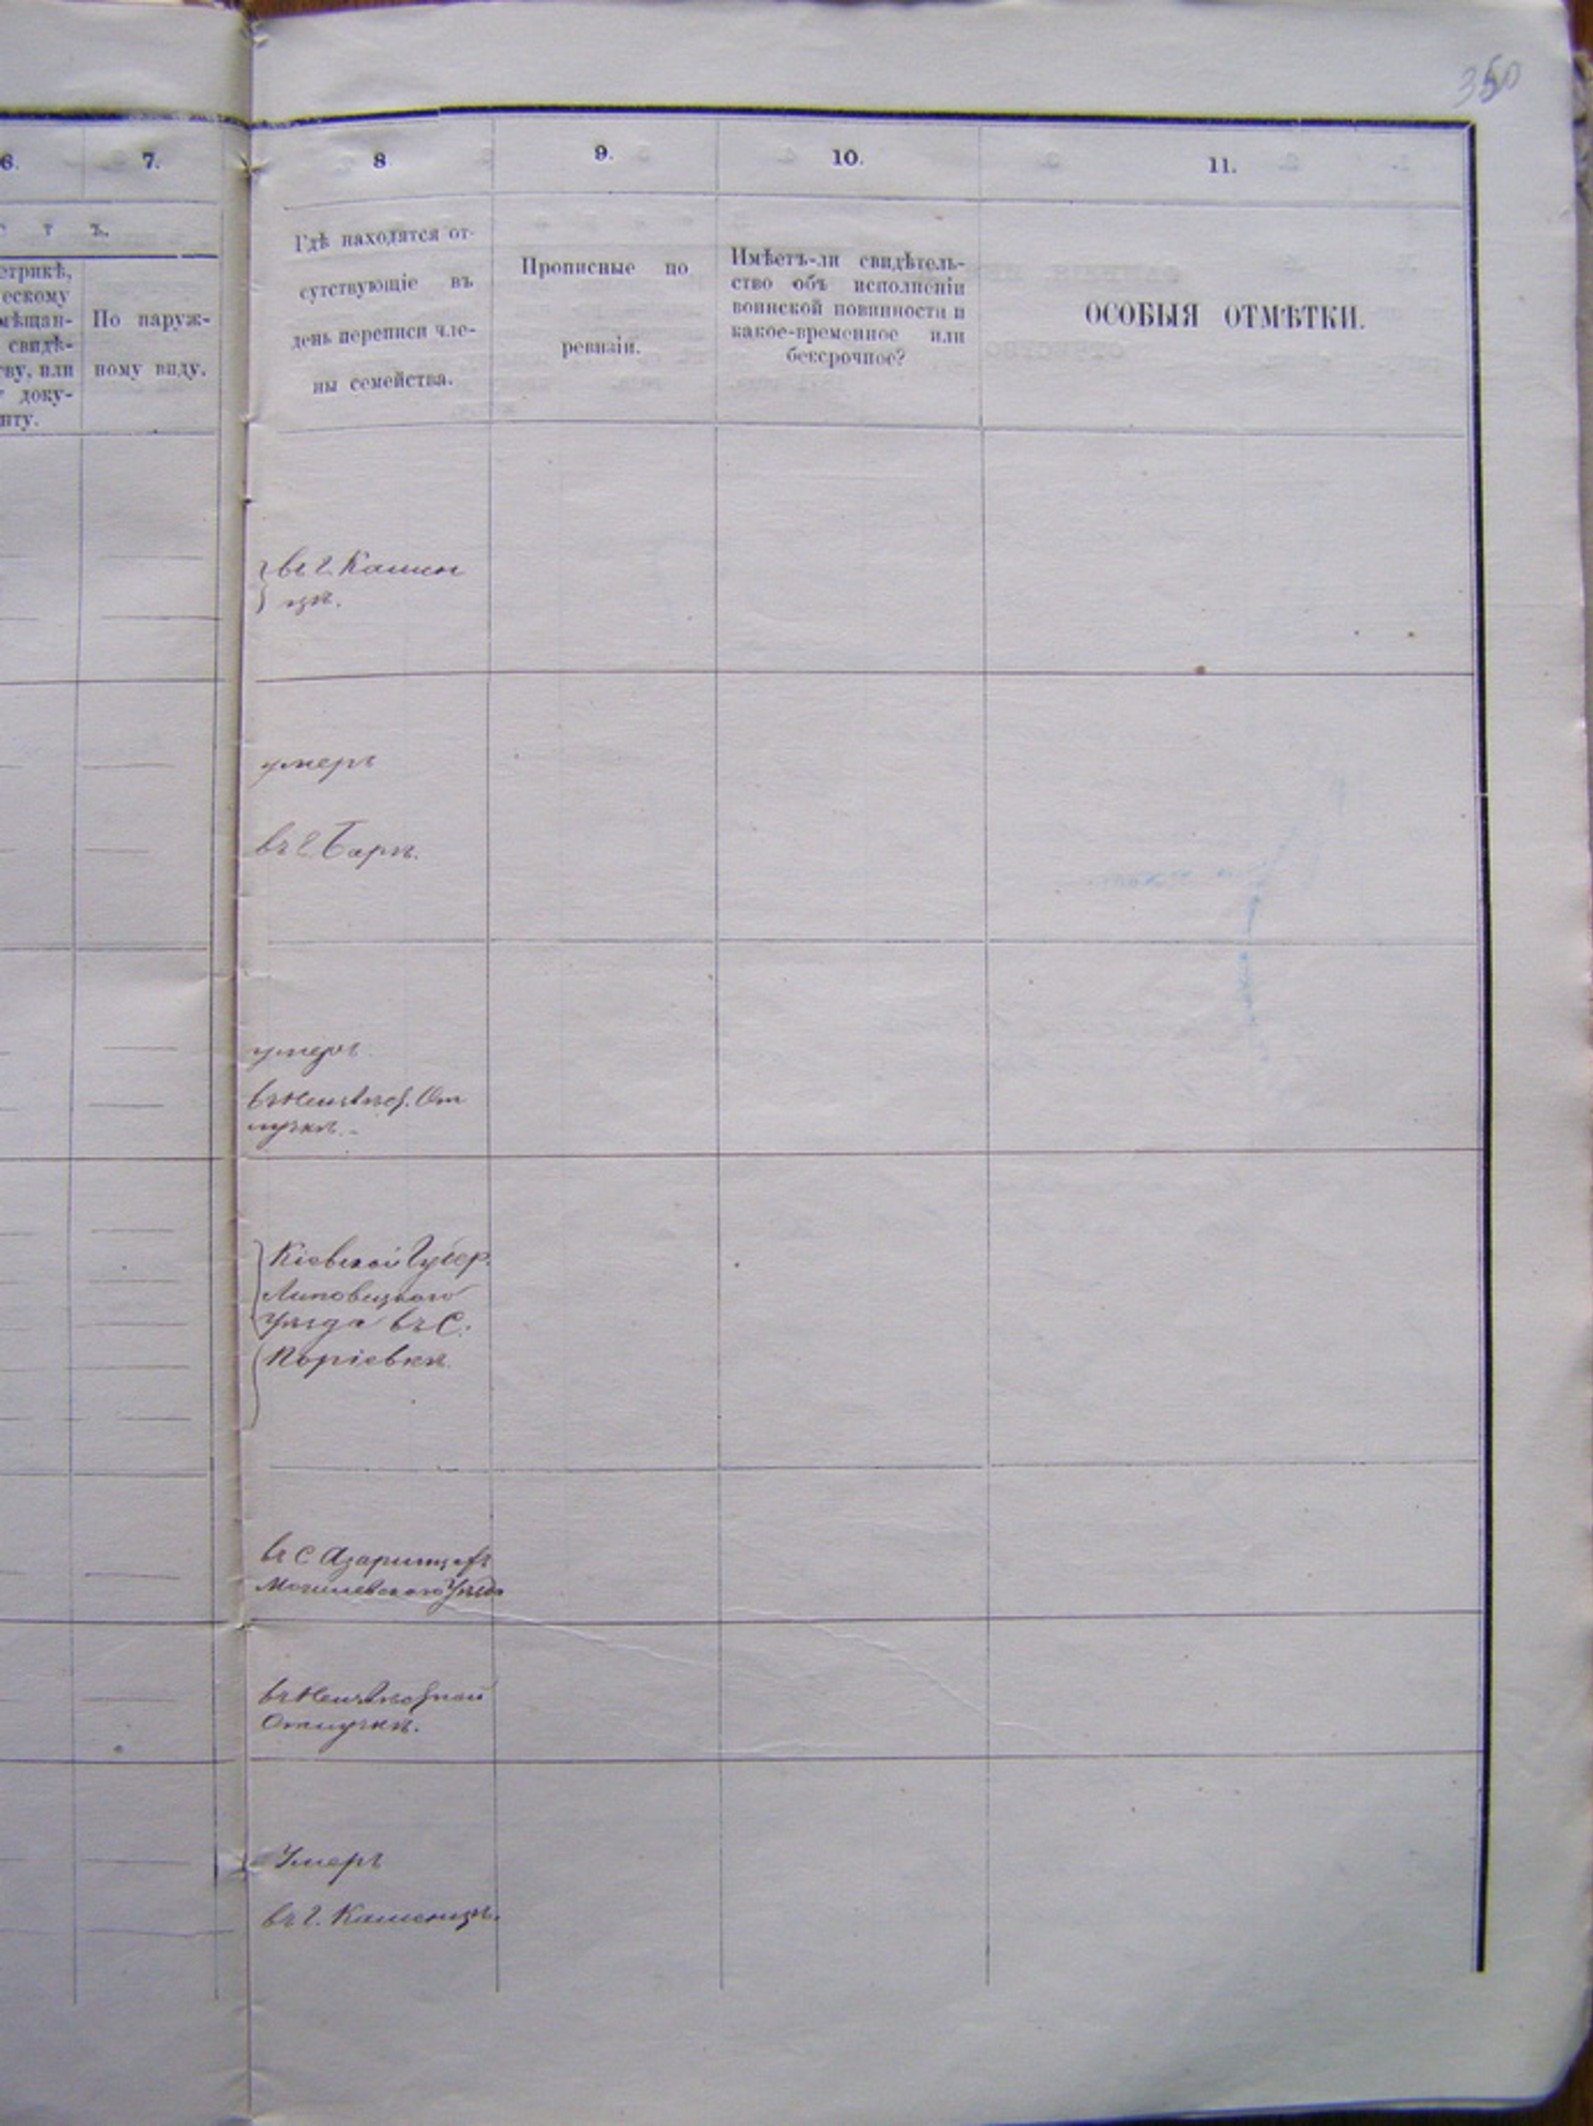 350
6.
7.
8
9.
10.
11.
с т ъ.
етрикѣ,
ескому
мѣщан-
свидѣ-
тву, или
у доку-
нту.
По наруж-
ному виду.
Гдѣ находятся от-
сутствующіе въ
день переписи чле-
ны семейства.
Прописные по
ревизіи.
Имѣетъ-ли свидѣтель-
ство объ исполненіи
воинской повинности и
какое-временное или
безсрочное?
ОСОБЫЯ ОТМѢТКИ.
въ г. Камен
цѣ.
умеръ
въ г. Барѣ.
умеръ
въ Неизвѣс. От
лучкѣ.
Кіевской Губер.
Липовецкаго
Уѣзда въ С.
въ С
Могилевскаго Уѣзда
въ Неизвѣстной
Отлучкѣ.
Умеръ
въ г. Каменцѣ.